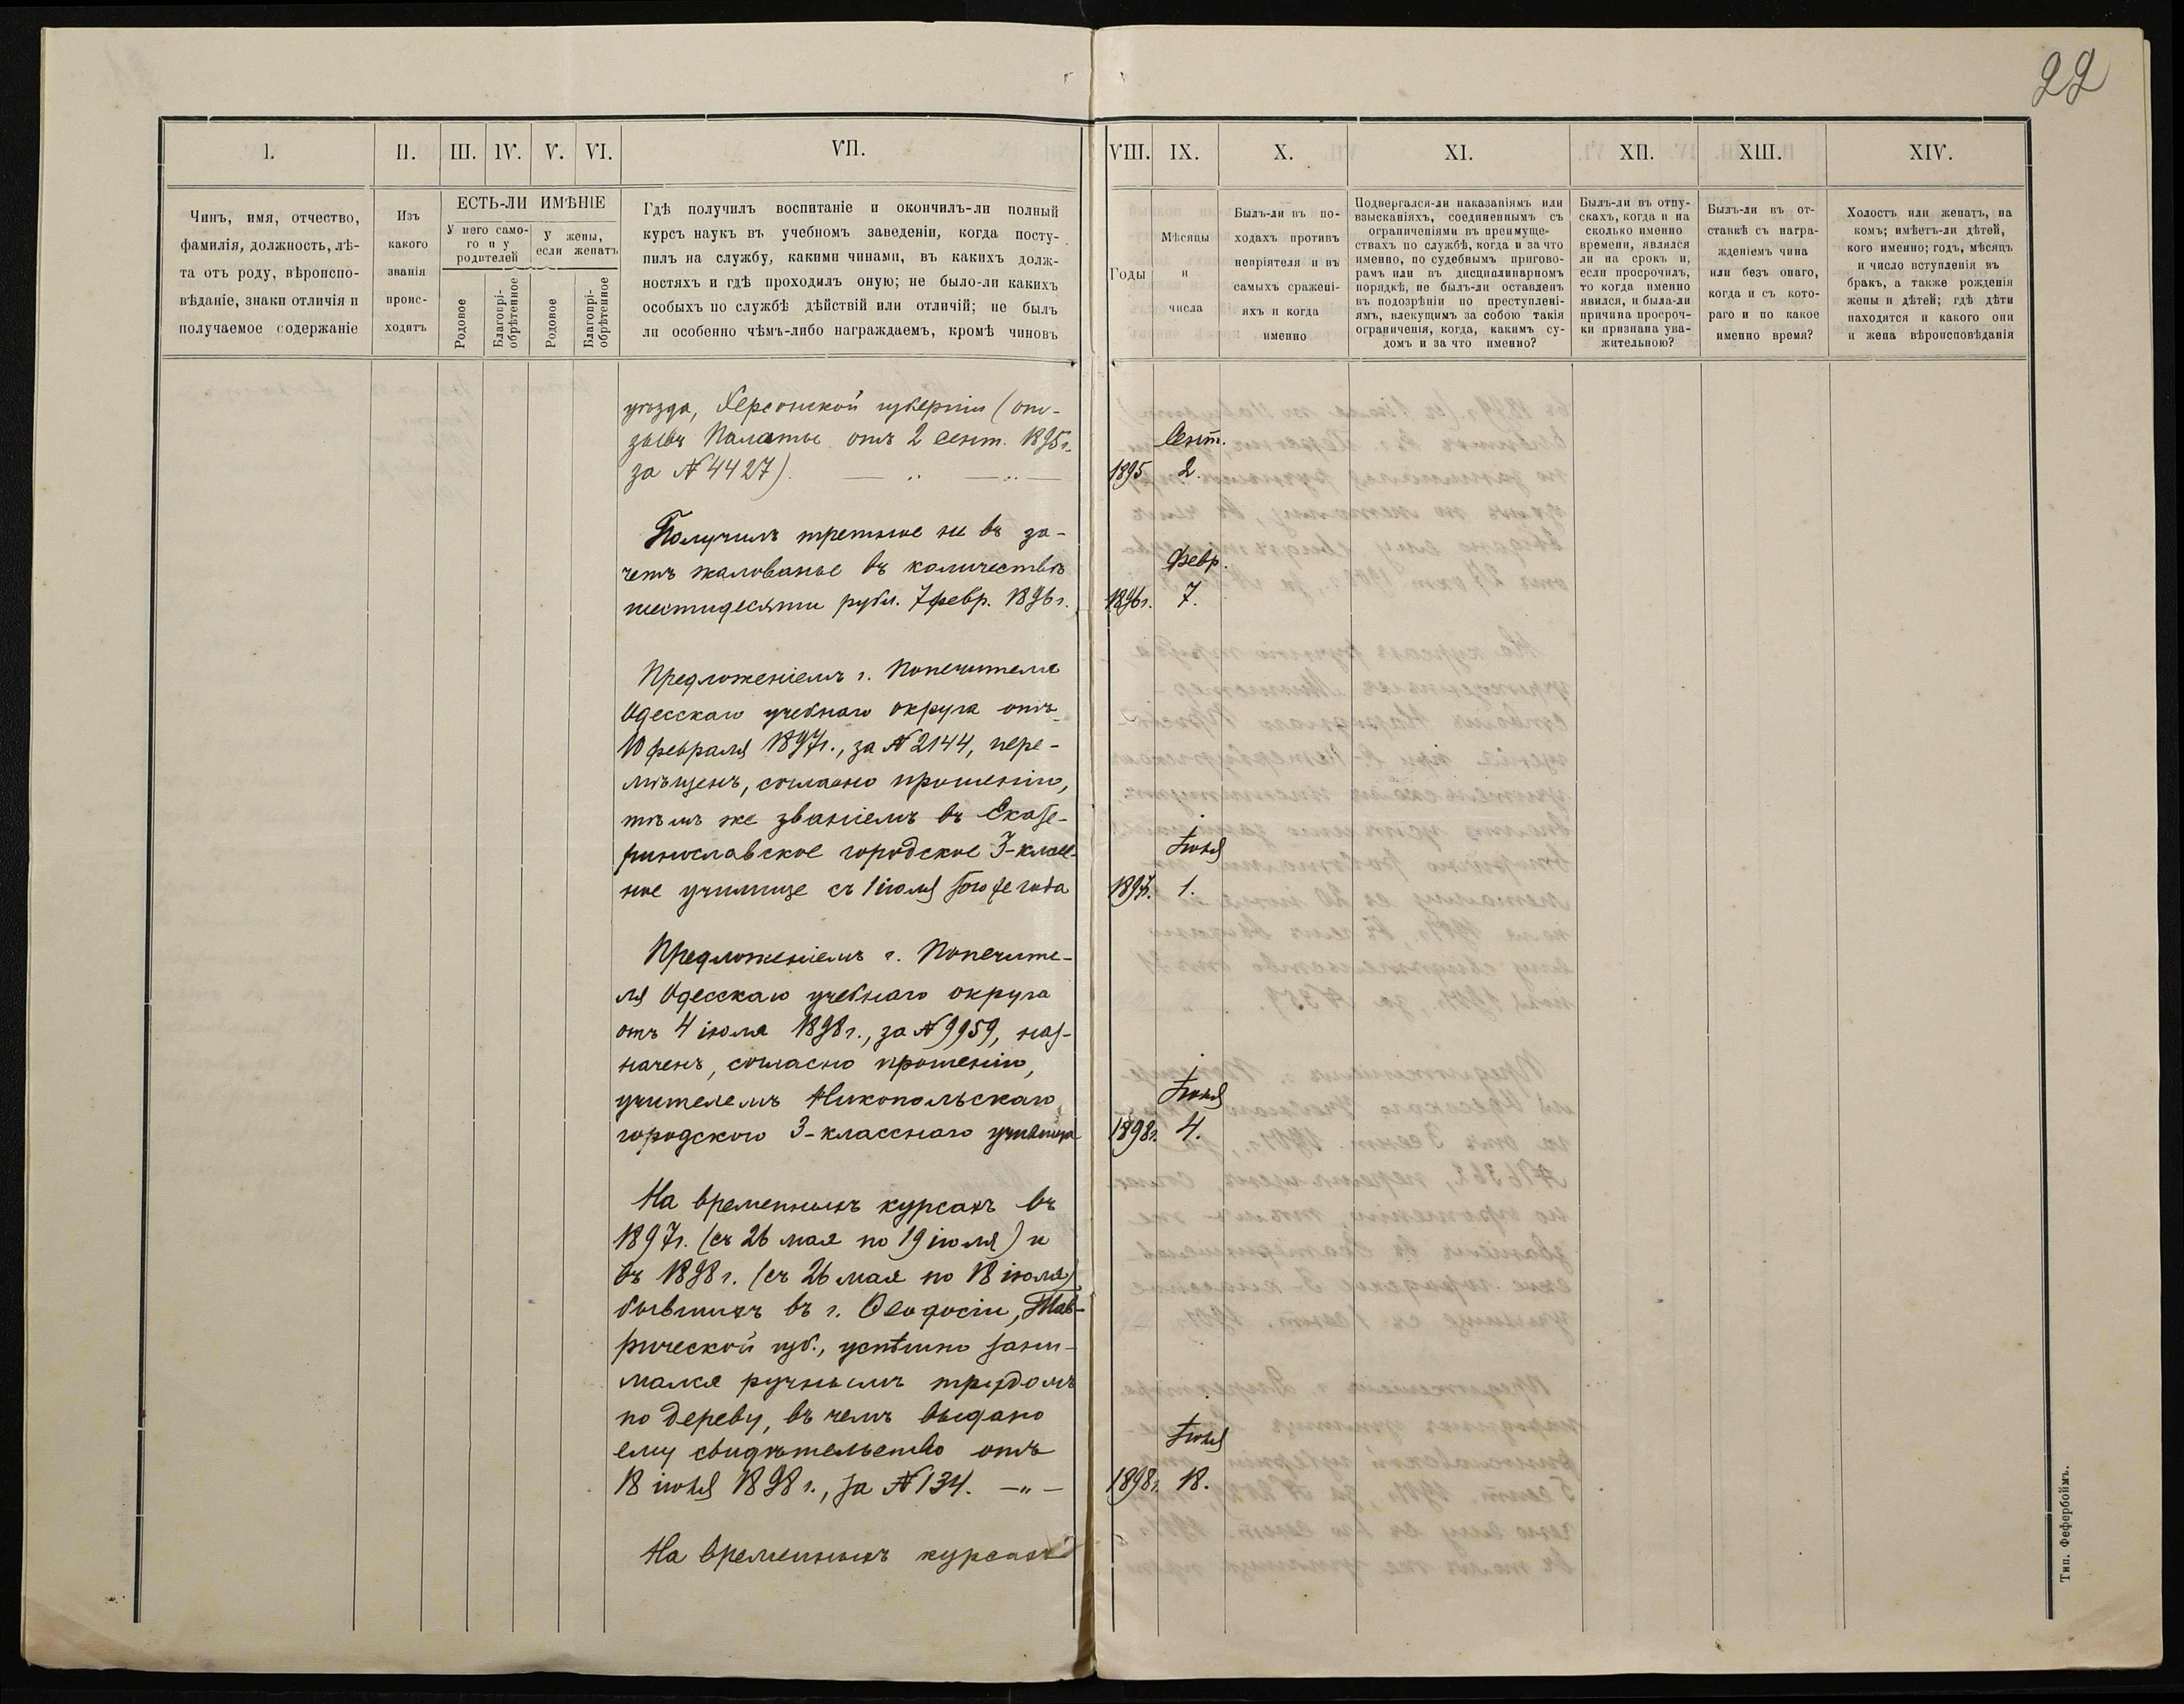 22
I.
II.
III.
IV.
V.
VI.
VII.
VIII.
IX.
X.
XI.
XII.
XIII.
XIV.
Чинъ, имя, отчество,
фамилія, должность, лѣ-
та отъ роду, вѣроиспо-
вѣданіе, знаки отличія и
получаемое содержаніе
Изъ
какого
званія
проис-
ходитъ
ЕСТЬ-ЛИ ИМѢНІЕ
У него само-
го и у
родителей
У жены,
если женатъ
Родовое
Благопрі-
обрѣтенное
Родовое
Благопрі-
обрѣтенное
Гдѣ получилъ воспитаніе и окончилъ-ли полный
курсъ наукъ въ учебномъ заведеніи, когда посту-
пилъ на службу, какими чинами, въ какихъ долж-
ностяхъ и гдѣ проходилъ оную; не было-ли какихъ
особыхъ по службѣ дѣйствій или отличій; не былъ
ли особенно чѣмъ-либо награждаемъ, кромѣ чиновъ
Годы
Мѣсяцы
и
числа
Былъ-ли въ по-
ходахъ противъ
непріятеля и въ
самыхъ сражені-
яхъ и когда
именно
Подвергался-ли наказаніямъ или
взысканіяхъ, соединеннымъ съ
ограниченіями въ преимуще-
ствахъ по службѣ, когда и за что
именно, по судебнымъ пригово-
рамъ или въ дисциплинарномъ
порядкѣ, не былъ-ли оставленъ
въ подозрѣніи по преступлені-
ямъ, влекущимъ за собою такія
ограниченія, когда, какимъ су-
домъ и за что именно?
Былъ-ли въ отпу-
скахъ, когда и на
сколько именно
времени, являлся
ли на срокъ и,
если просрочилъ,
то когда именно
явился, и была-ли
причина просроч-
ки признана ува-
жительною?
Былъ-ли въ от-
ставкѣ съ награ-
жденіемъ чина
или безъ онаго,
когда и съ кото-
раго и по какое
именно время?
Холостъ или женатъ, на
комъ; имѣетъ-ли дѣтей,
кого именно; годъ, мѣсяцъ
и число вступленія въ
бракъ, а также рожденія
жены и дѣтей; гдѣ дѣти
находятся и какого они
и жена вѣроисповѣданія
уѣзда, Херсонской губерніи (от-
зывъ Палаты отъ 2 Сент. 1895 г.
за № 4427).
Сент.
1895 2.
Получилъ третное не въ за-
четъ жалованье въ количествѣ
шестидесяти рубл. 7 февр. 1896 г.
Февр.
1896 г. 7.
Предложеніемъ г. Попечителя
Одесскаго учебнаго округа отъ
10 февраля 1897 г., за № 2144, пере-
мѣщенъ, согласно прошенію,
тѣмъ же званіемъ въ Екате-
ринославское городское 3-класс-
ное училище съ 1 іюля того же года
Іюля
1897 г. 1.
Предложеніемъ г. Попечите-
ля Одесскаго учебнаго округа
отъ 4 іюля 1898 г., за № 9959, наз-
наченъ, согласно прошенію,
учителемъ Никопольскаго
городского 3-класснаго училища
Іюля
1898 г. 4.
На временныхъ курсахъ въ
1897 г. (съ 26 мая по 19 іюля) и
въ 1898 г. (съ 26 мая по 18 іюля)
бывшихъ въ г. Ѳеодосіи, Тав-
рической губ., успѣшно зани-
мался ручнымъ трудомъ
по дереву, въ чемъ выдано
ему свидѣтельство отъ
18 іюля 1898 г., за № 134. — " —
Іюля
1898 г. 18.
На временныхъ курсахъ
Тип. Фефербоймъ.